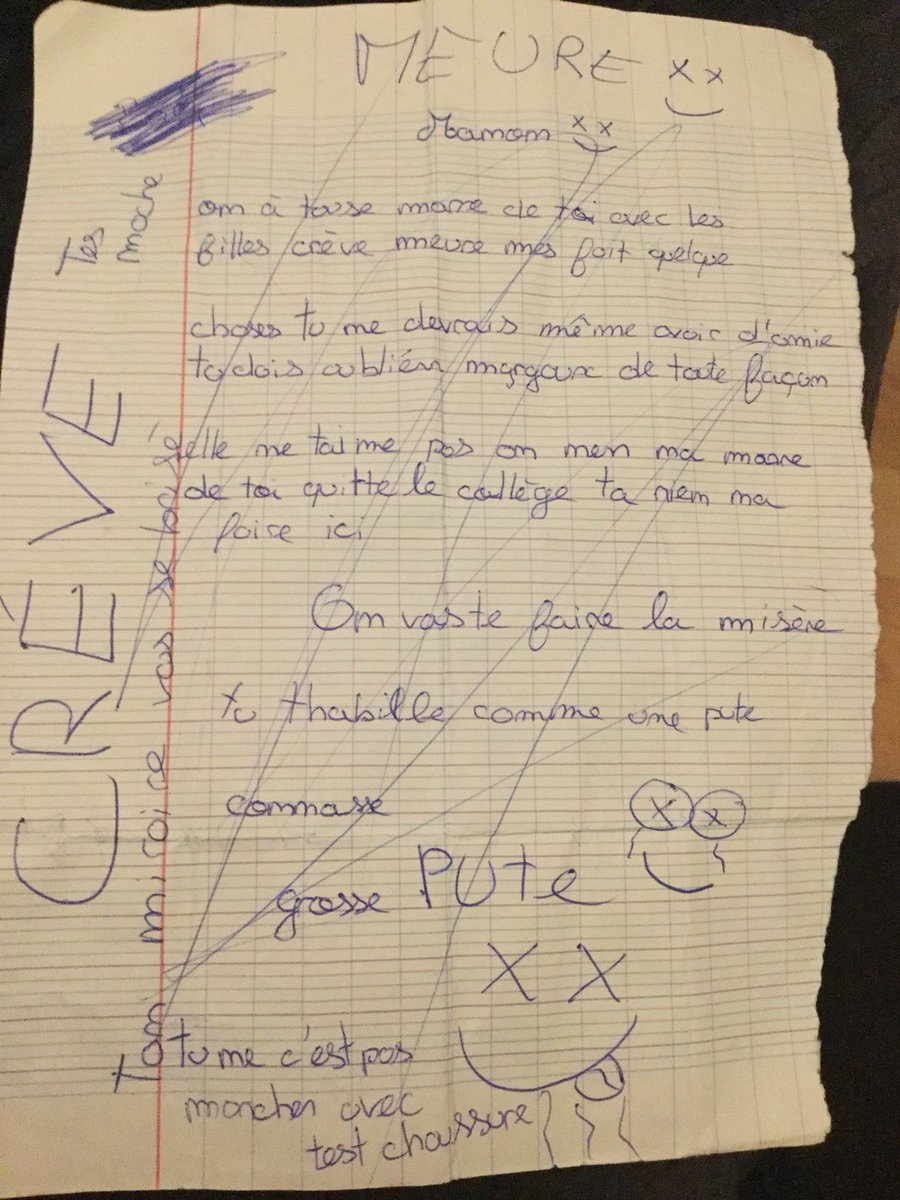 MEURE
Manon
Tes
moche
on à tousse marre de toi avec les
filles crève mieure mes fait quelque
choses tu me devrais même avoir d'amie
tu dois oubliér margaux de toute façon
elle ne taime pas on men ma marre
de toi quitte le collège ta niem ma
foire ici
On vas te faire la misère
tu thabille comme une pute
connasse
grosse PUte
CRÈVE
Ton miroire vas se
tu me c'est pas
marcher avec
test chaussure